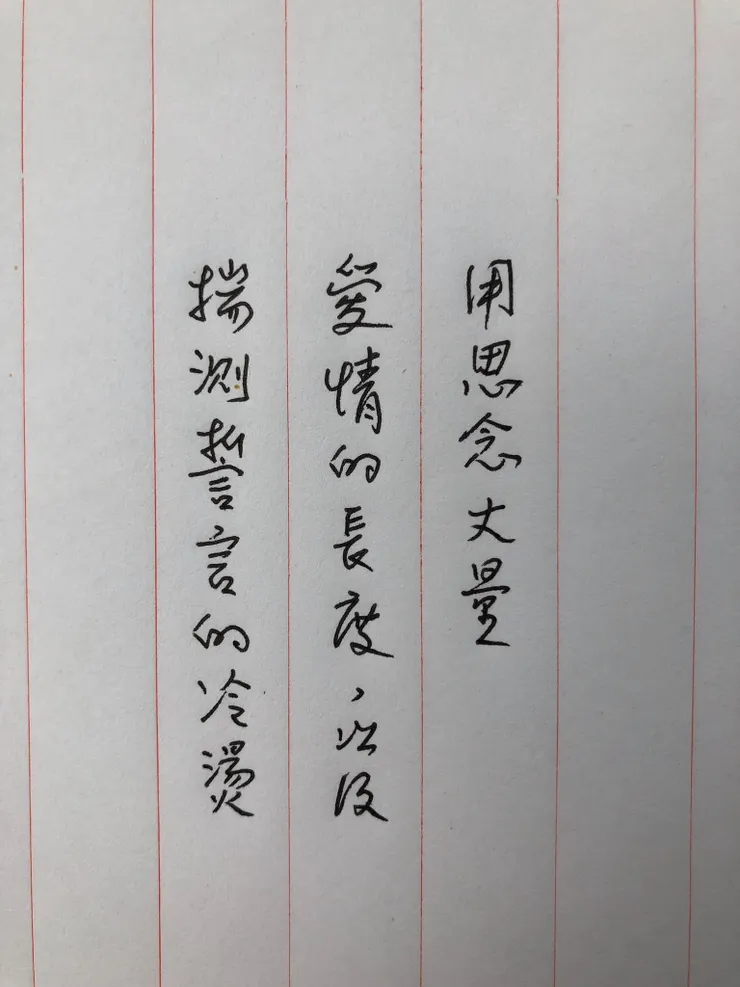 用思念丈量
愛情的長度，以及
揣測誓言的冷燙